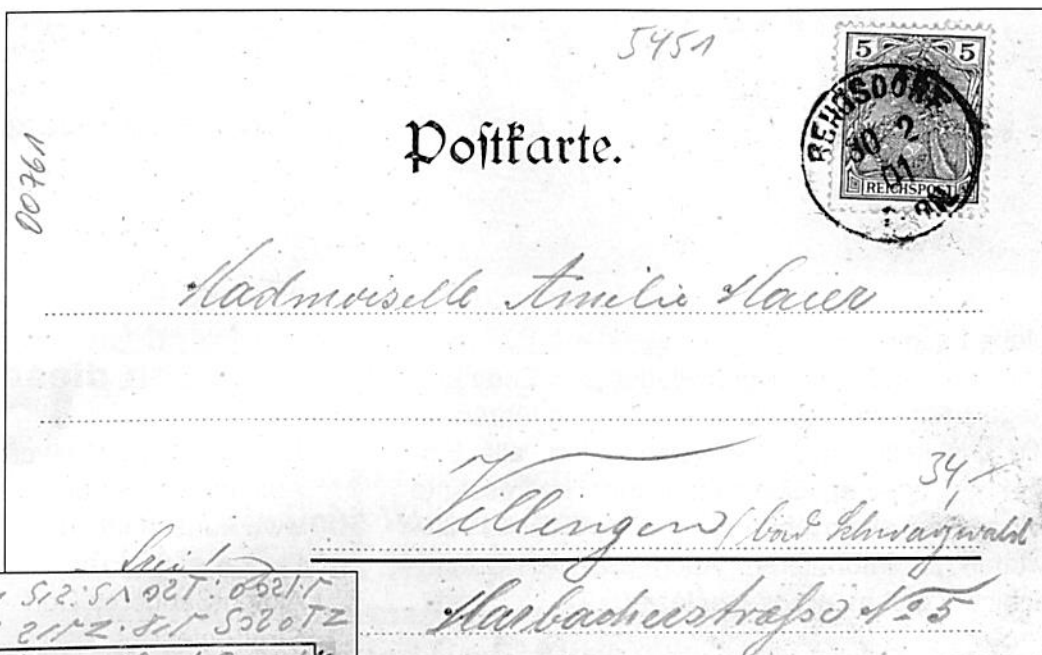 5451
5 5
REICHSPOST
2
01
00761
Postkarte.
Madmoiselle Amelie Maier
34
Villingen (bad Schwarzwald
frei
Marbacherstraße No 5